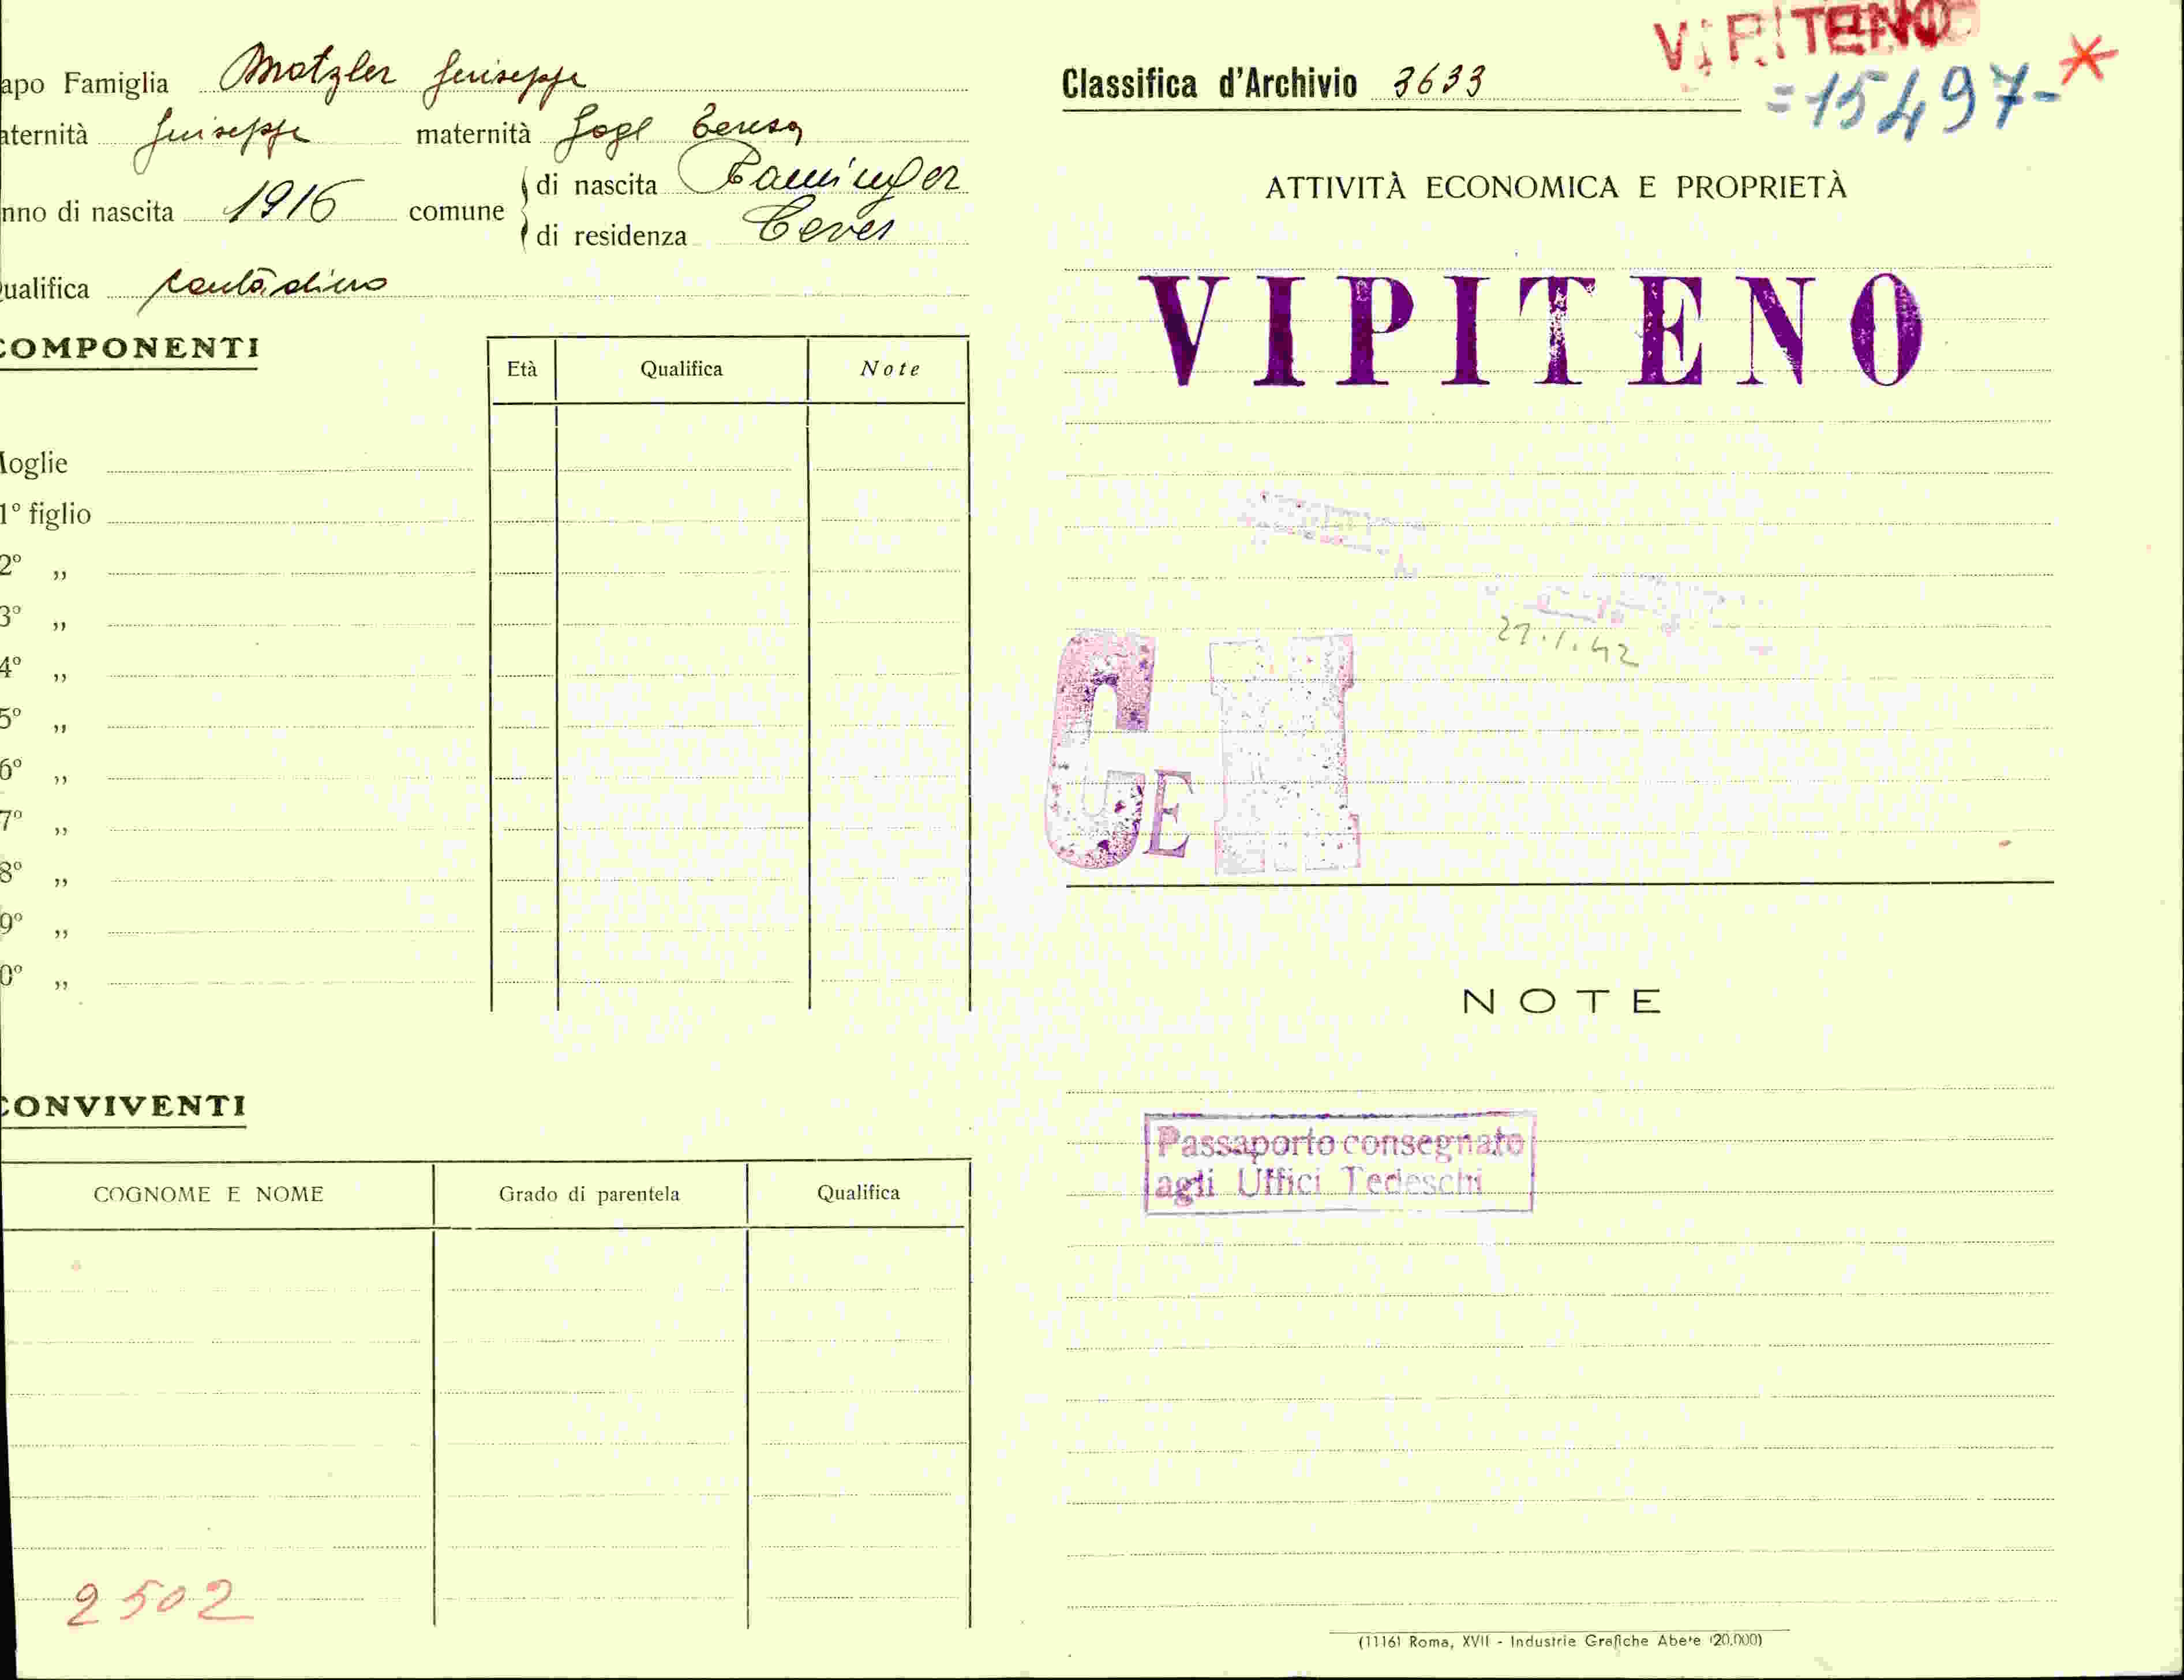 apo Famiglia Matzler Giuseppe
aternità Giuseppe maternità Gogl Teresa
nno di nascita 1916 comune di nascita
di residenza Ceves
ualifica contadino
COMPONENTI
Età Qualifica Note
loglie
1° figlio
2° „
3° „
4° „
5° „
6° „
7° „
8° „
9° „
0° „
CONVIVENTI
COGNOME E NOME Grado di parentela Qualifica
2502
VIPITENO
Classifica d'Archivio 3633
=15497-
ATTIVITÀ ECONOMICA E PROPRIETÀ
VIPITENO
21.1.42
GE I
NOTE
Passaporto consegnato
agli Uffici Tedeschi
(1116) Roma, XVII - Industrie Grafiche Abete (20.000)